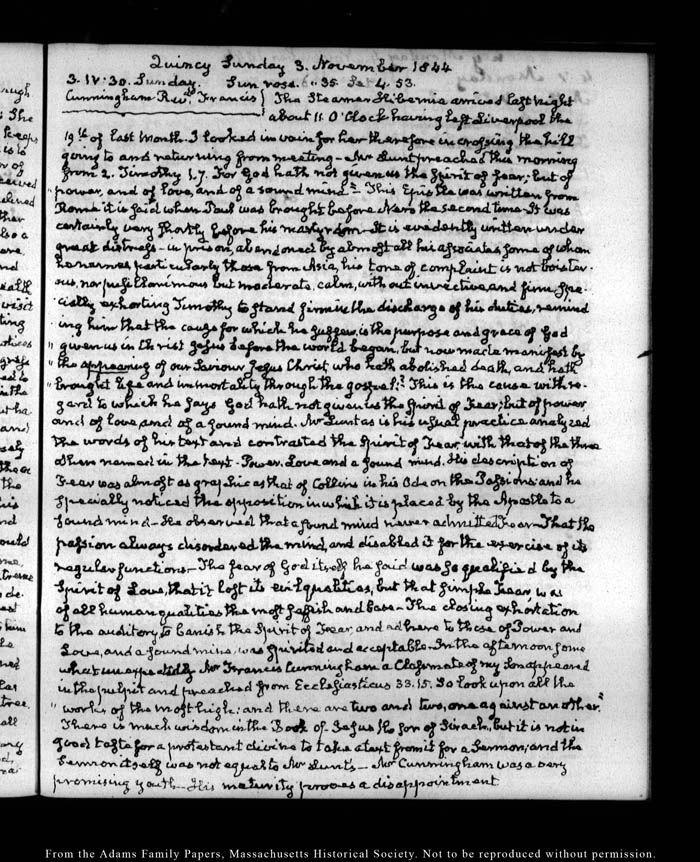 Quincy Sunday 3. November 1844
3. IV: 30. Sunday. Sun rose. 35 Se 4. 53.
Cunningham Revd. Francis } The Steamer Hibernia arrived last Night
about 11 O'Clock having left Liverpool the
19th of last Month. I looked in vain for her therefore in crossing the hill
going to and returning from meeting – Mr Lunt preached this morning
from 2. Timothy 1, 7. For God hath not given us the Spirit of fear; but of
" power, and of love, and of a sound mind." This Epistle was written from
Rome it is said when Paul was brought before Nero the second time – It was
certainly very shortly before his martyrdom – It is evidently written under
great distress – in prison, abandoned by almost all his associates, some of whom
he names, particularly those from Asia, his tone of complaint is not boister-
ous, nor pusillanimous but moderate, calm, without invective, and firm, spe-
cially exhorting Timothy to stand firm in the discharge of his duties, remind
ing him that the cause for which he suffers, is the purpose and grace of God
" given us in Christ Jesus before the world began, but now made manifest by
" the appearing of our Saviour Jesus Christ, who hath abolished death, and hath
" brought life and immortality through the gospel:" This is the cause with re-
gard to which he says God hath not given us the Spirit of Fear; but of power
and of love, and of a sound mind. Mr Lunt as is his usual practice analyzed
the words of his text and contrasted the Spirit of Fear, with that of the three
others named in the text - Power, Love and a sound mind. His description of
Fear was almost as graphic as that of Collins in his Ode on the Passions and he
specially noticed the opposition in which it is placed by the Apostle to a
sound mind – He observed that a sound mind never admitted Fear – That the
passion always disordered the mind, and disabled it for the exercise of its
regular functions – The fear of God itself he said was so qualified by the
Spirit of Love, that it lost its evil qualities, but that simple Fear was
of all human qualities the most selfish and base – The closing exhortation
to the auditory, to banish the Spirit of Fear, and adhere to those of Power and
Love, and a sound mind, was spirited and acceptable. In the afternoon some
what unexpectedly Mr Francis Cunningham a Classmate of my Son appeared
in the pulpit and preached from Ecclesiasticus 33. 15. So look upon all the
" works of the most high: and there are two and two, one against another."
There is much wisdom in the Book of Jesus the son of Sirach, but it is not in
good taste for a protestant divine to take a text from it for a Sermon; and the
Sermon itself was not equal to Mr Lunt's – Mr Cunningham was a very
promising youth – His maturity proves a disappointment
From the Adams Family Papers, Massachusetts Historical Society. Not to be reproduced without permission.